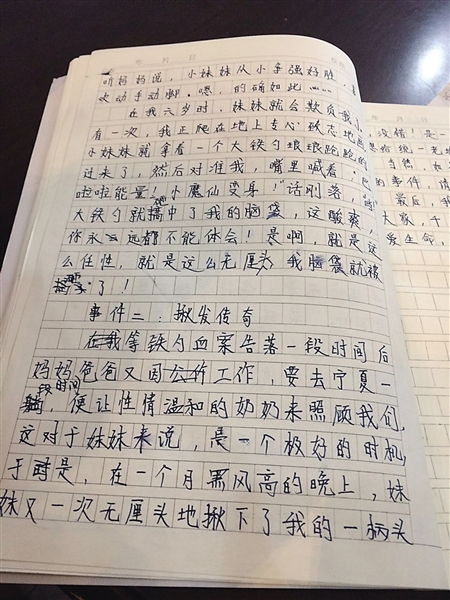 年 月 日
听妈妈说，小妹妹从小争强好胜，喜
欢动手动脚。嗯，的确如此……
在我六岁时，妹妹就会欺负我
有一次，我正爬在地上专心致志地画
小妹妹就拿着一个大铁勺踉踉跄跄的
过来了，然后对准我，嘴里喊着：巴
啦啦能量！小魔仙变身！"话刚落，
大铁勺就搞中了我的脑袋，这酸爽，
你永远都不能体会！是啊，就是这
么任性，就是这么无厘头，我脑袋就被
了！
事件二：揪发传奇
在我等铁勺血案告落一段时间后
妈妈爸爸又因工作，要去宁夏一
段时间，便让性情温和的奶奶来照顾我们，
这对于妹妹来说，是一个极好的时机，
于是，在一个月黑风高的晚上，妹
妹又一次无厘头地揪下了我的一柄头
没错！是一
当然，如
的事件，
最后，我
大家，千
爱生命，